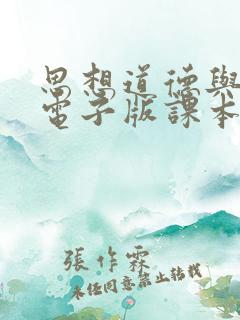 思想道德與
電子版課本
張作霖
未經同意禁止转载